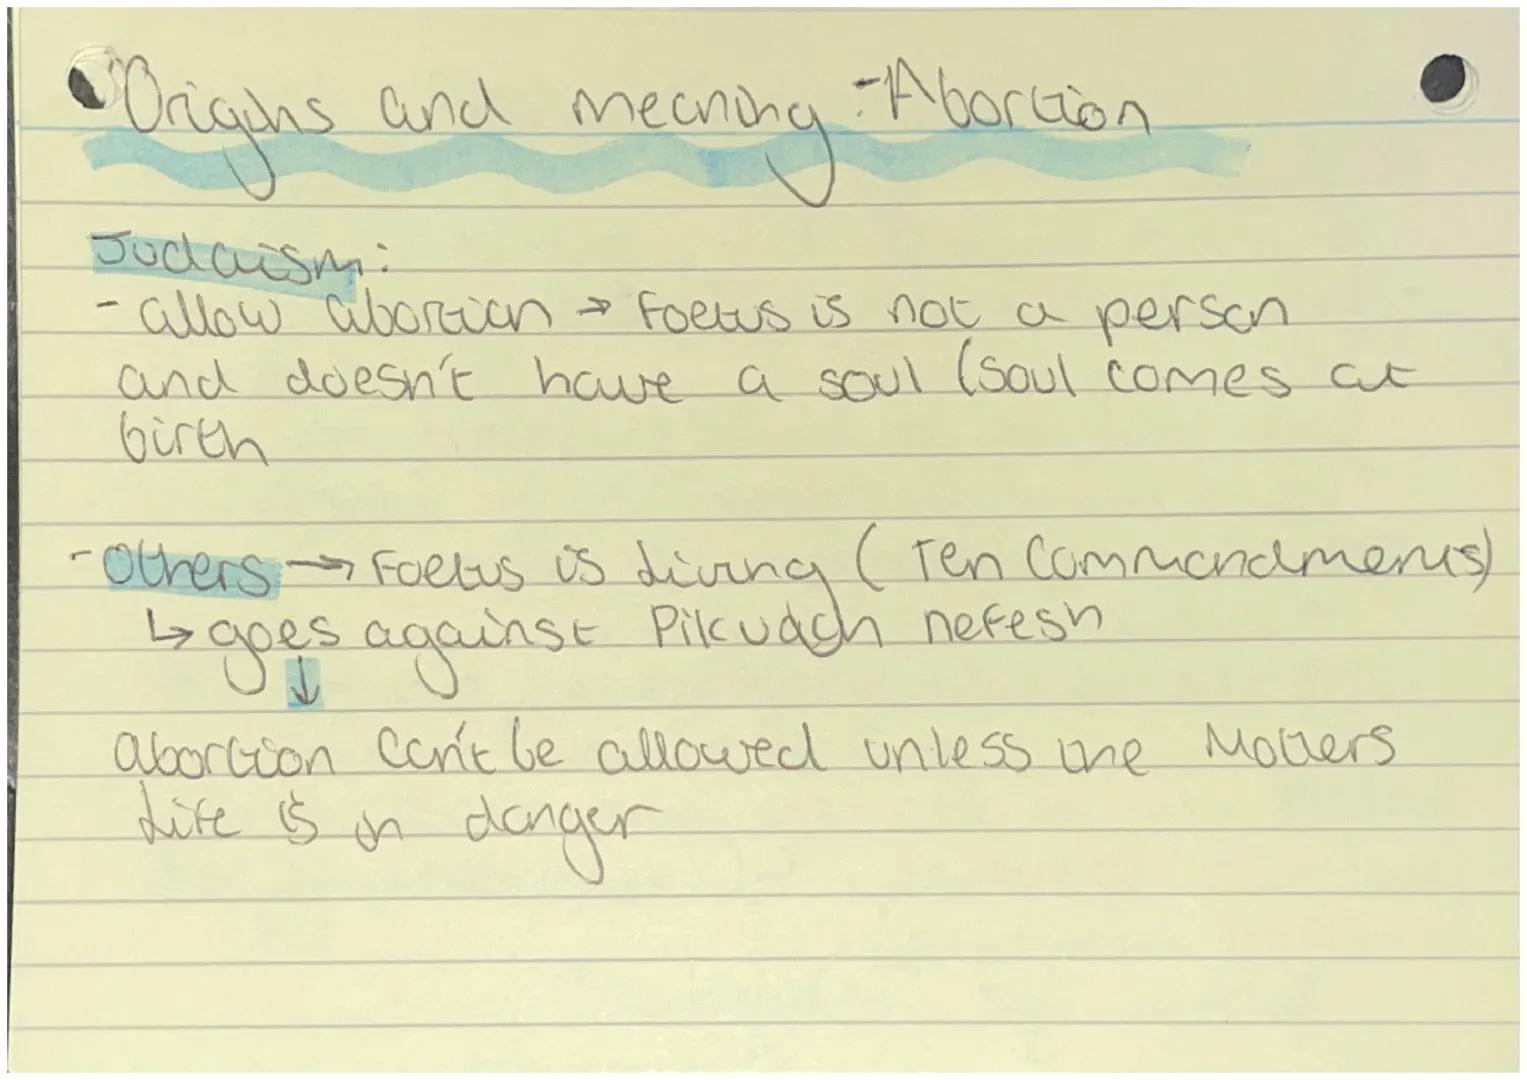 Origins and meaning :- Abortion
Judaism:
- allow abortion → Foetus is not a person
and doesn't have a soul (Soul comes at
birth
- Others → Foetus is living (Ten Commandments)
↳ goes against Pikuach nefesh
↓
abortion can't be allowed unless the Mothers
Life is in danger